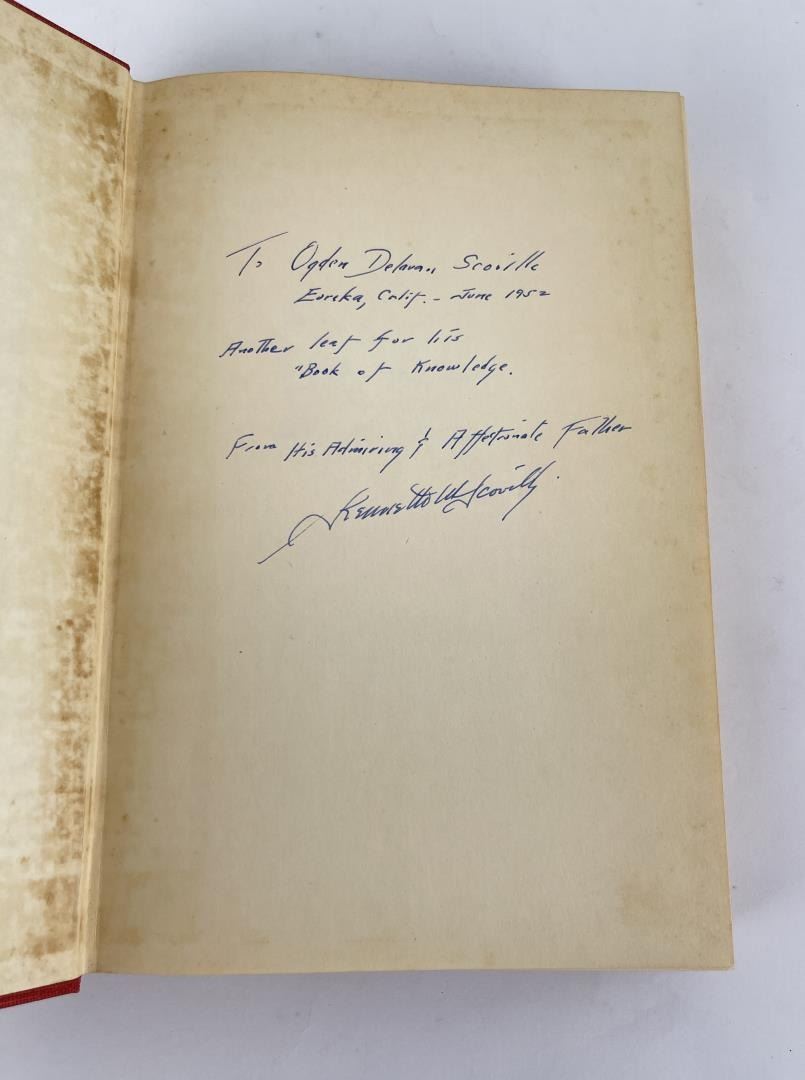 To Ogden Delavan Scoville
Eureka, Calif. - June 1952
Another leaf for his
"Book of Knowledge.
From His Admiring & Affectionate Father
Kenneth W Scoville.